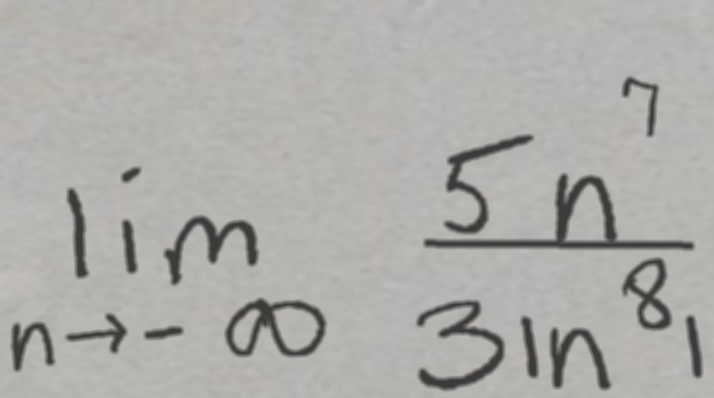 lim n→-∞ 5n⁷ / 3|n⁸|